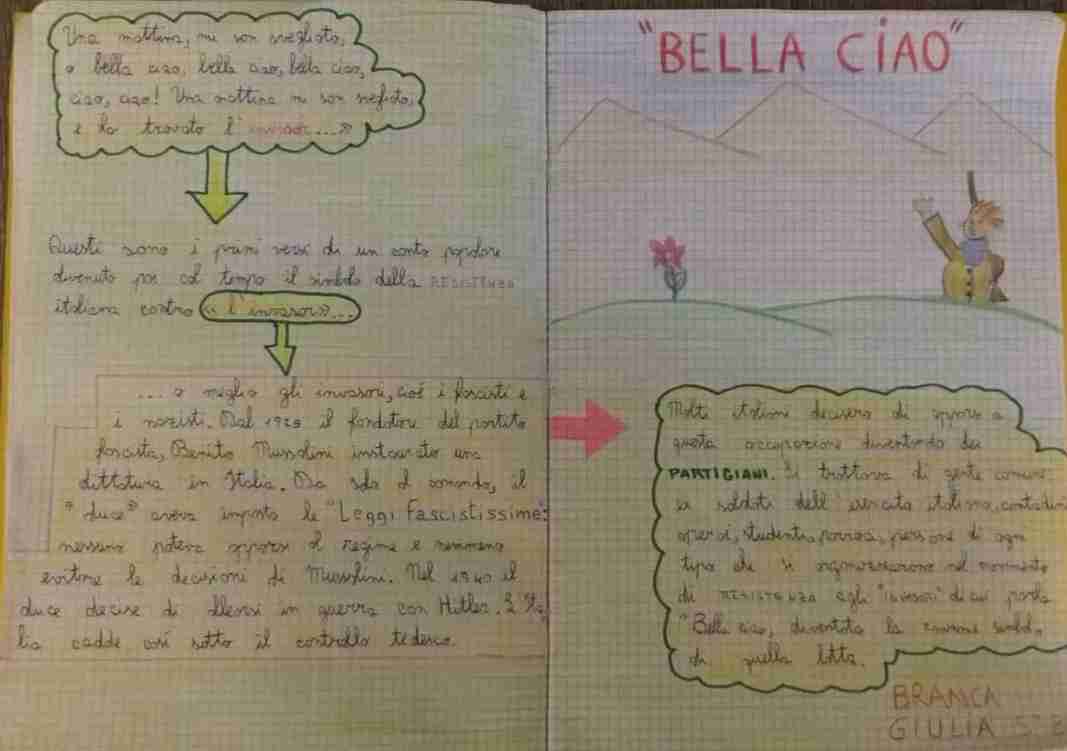 Una mattina, mi son svegliato,
o bella ciao, bella ciao, bella ciao,
ciao, ciao! Una mattina mi son svegliato,
e ho trovato l'invasor...»
Questi sono i primi versi di un canto popolare
divenuto poi col tempo il simbolo della RESISTENZA
italiana contro «l'invasor»...
...o meglio gli invasori, cioè i fascisti e
i nazisti. Dal 1925 il fondatore del partito
fascista, Benito Mussolini instaurato una
dittatura in Italia. Da solo al comando, il
"duce" aveva imposto le "Leggi Fascistissime":
nessuno poteva opporsi al regime e nemmeno
le decisioni di Mussolini. Nel 1940 il
duce decise di allearsi in guerra con Hitler. L'Ita
lia cadde così sotto il controllo tedesco.
"BELLA CIAO"
Molti italiani decisero di opporsi a
questa occupazione diventando dei
PARTIGIANI. Si trattava di gente comune:
ex soldati dell'esercito italiano, contadini
operai, studenti, persone di ogni
tipo che si organizzarono nel movimento
di RESISTENZA agli "invasori" di cui parla
"Bella ciao, diventata la canzone simbolo
di quella lotta.
BRANCA
GIULIA 5° B